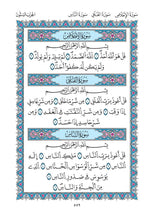 سورة الإخلاص
بسم الله الرحمن الرحيم
قل هو الله أحد ۝ الله الصمد ۝ لم يلد ولم يولد ۝
ولم يكن له كفوا أحد ۝
سورة الفلق
بسم الله الرحمن الرحيم
قل أعوذ برب الفلق ۝ من شر ما خلق ۝ ومن شر غاسق
إذا وقب ۝ ومن شر النفاثات في العقد ۝ ومن
شر حاسد إذا حسد ۝
سورة الناس
بسم الله الرحمن الرحيم
قل أعوذ برب الناس ۝ ملك الناس ۝ إله
الناس ۝ من شر الوسواس الخناس ۝ الذي
يوسوس في صدور الناس ۝
من الجنة والناس ۝